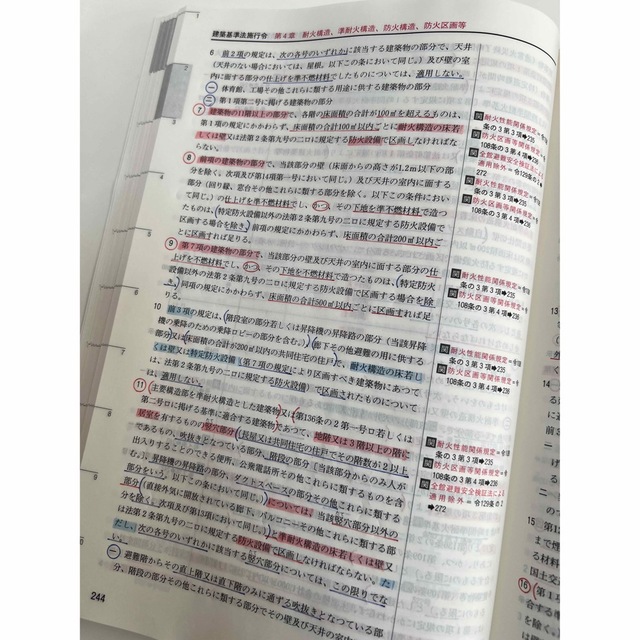 建築基準法施行令 第4章 耐火構造、準耐火構造、防火構造、防火区画等
6 前2項の規定は、次の各号のいずれかに該当する建築物の部分で、天井
(天井のない場合においては、屋根。以下この条において同じ。)及び壁の室
内に面する部分の仕上げを準不燃材料でしたものについては、適用しない。
一 体育館、工場その他これらに類する用途に供する建築物の部分
二 第1項第二号に掲げる建築物の部分
7 建築物の11階以上の部分で、各階の床面積の合計が100㎡を超えるものは、
第1項の規定にかかわらず、床面積の合計100㎡以内ごとに耐火構造の床若
しくは壁又は法第2条第九号の二ロに規定する防火設備で区画しなければな
らない。
8 前項の建築物の部分で、当該部分の壁(床面からの高さが1.2m以下の部
分を除く。次項及び第14項第一号において同じ。)及び天井の室内に面する
部分(回り縁、窓台その他これらに類する部分を除く。以下この条において
同じ。)の仕上げを準不燃材料でし、かつ、その下地を準不燃材料で造つ
たものは、(特定防火設備以外の法第2条第九号の二ロに規定する防火設備で
区画する場合を除き、)前項の規定にかかわらず、床面積の合計200㎡以内ご
とに区画すれば足りる。
9 第7項の建築物の部分で、当該部分の壁及び天井の室内に面する部分の仕
上げを不燃材料でし、かつ、その下地を不燃材料で造つたものは、(特定防火
設備以外の法第2条第九号の二ロに規定する防火設備で区画する場合を除
き、)同項の規定にかかわらず、床面積の合計500㎡以内ごとに区画すれば足
りる。
10 前3項の規定は、(階段室の部分若しくは昇降機の昇降路の部分(当該昇降
機の乗降のための乗降ロビーの部分を含む。)、廊下その他避難の用に供する
部分)又は(床面積の合計が200㎡以内の共同住宅の住戸)で、耐火構造の床若し
くは壁又は特定防火設備(第7項の規定により区画すべき建築物にあつて
は、法第2条第九号の二ロに規定する防火設備)で区画されたものについて
は、適用しない。
11 (主要構造部を準耐火構造とした建築物)又は(第136条の2第一号ロ若しくは
第二号ロに掲げる基準に適合する建築物)であつて、地階又は3階以上の階に
居室を有するものの竪穴部分(長屋又は共同住宅の住戸でその階数が2以上
であるもの、吹抜きとなつている部分、階段の部分(当該部分からのみ人が
出入りすることのできる便所、公衆電話所その他これらに類するものを含
む。)、昇降機の昇降路の部分、ダクトスペースの部分その他これらに類する
部分をいう。以下この条において同じ。)については、当該竪穴部分以外の
部分(直接外気に開放されている廊下、バルコニーその他これらに類する部
分を除く。次項及び第13項において同じ。)と準耐火構造の床若しくは壁又
は法第2条第九号の二ロに規定する防火設備で区画しなければならない。た
だし、次の各号のいずれかに該当する竪穴部分については、この限りでな
い。
一 避難階からその直上階又は直下階のみに通ずる吹抜きとなつている部
分、階段の部分その他これらに類する部分でその壁及び天井の室内に面
244
関 耐火性能関係規定=令108
条の3第3項➡235
関 防火区画等関係規定=令
108条の3第4項➡235
関 全館避難安全検証法による
適用除外=令129条の2➡
272
関 耐火性能関係規定=令108
条の3第3項➡235
関 防火区画等関係規定=令
108条の3第4項➡235
関 耐火性能関係規定=令108
条の3第3項➡235
関 防火区画等関係規定=令
108条の3第4項➡235
関 耐火性能関係規定=令108
条の3第3項➡235
関 防火区画等関係規定=令
108条の3第4項➡235
関 耐火性能関係規定=令108
条の3第3項➡235
関 防火区画等関係規定=令
108条の3第4項➡235
関 全館避難安全検証法による
適用除外=令129条の2
➡272
13
14
15
16